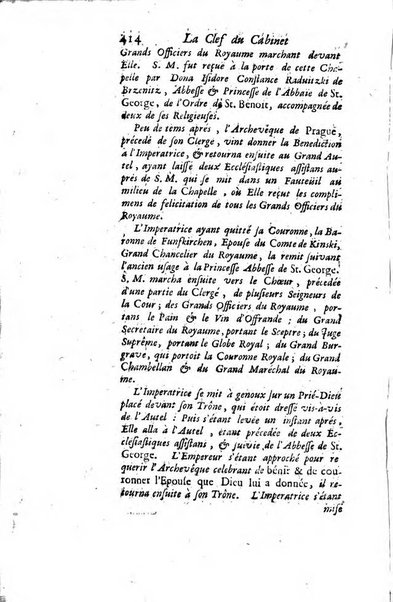 414 La Clef du Cabinet
Grands Officiers du Royaume marchant devant
Elle. S. M. fut reçuë à la porte de cette Cha-
pelle par Dona Isidore Constance Raduitzki de
Brzenitz, Abbesse & Princesse de l'Abbaïe de St.
George, de l'Ordre de St. Benoit, accompagnée de
deux de ses Religieuses.
Peu de tems aprés, l'Archevêque de Prague,
précedé de son Clergé, vint donner la Benediction
à l'Imperatrice, & retourna ensuite au Grand Au-
tel, ayant laissé deux Ecclésiastiques assistans au-
près de S. M. qui se mit dans un Fauteüil au
milieu de la Chapelle, où Elle reçut les compli-
mens de felicitation de tous les Grands Officiers du
Royaume.
L'Imperatrice ayant quitté sa Couronne, la Ba-
ronne de Funfkirchen, Epouse du Comte de Kinski,
Grand Chancelier du Royaume, la remit suivant
l'ancien usage à la Princesse Abbesse de St. George.
S. M. marcha ensuite vers le Chœur, précédée
d'une partie du Clergé, de plusieurs Seigneurs de
la Cour; des Grands Officiers du Royaume, por-
tans le Pain & le Vin d'Offrande; du Grand
Secretaire du Royaume, portant le Sceptre; du Juge
Suprême, portant le Globe Royal; du Grand Bur-
grave, qui portoit la Couronne Royale; du Grand
Chambellan & du Grand Maréchal du Royau-
me.
L'Imperatrice se mit à genoux sur un Prié-Dieu
placé devant son Trône, qui étoit dressé vis-à-vis
de l'Autel: Puis s'étant levée un instant aprés,
Elle alla à l'Autel, étant précedée de deux Ec-
clésiastiques assistans, & suivie de l'Abbesse de St.
George. L'Empereur s'étant approché pour re-
querir l'Archevêque celebrant de bénir & de cou-
ronner l'Epouse que Dieu lui a donnée, il re-
tourna ensuite à son Trône. L'Imperatrice s'étant
mise